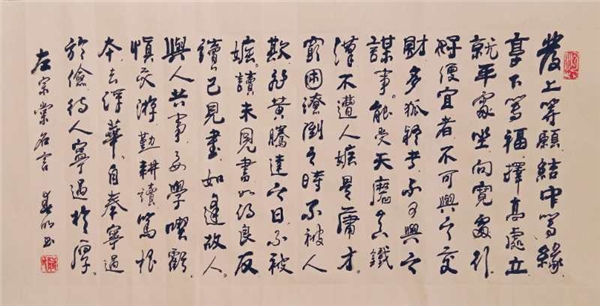 發上等願結中等緣
享下等福擇高處立
就平處坐向寬處行
好便宜者不可與之交
財多狐疑者不可與之
謀事能受天磨真鐵
漢不遭人嫉是庸才
窮困潦倒之時不被人
欺飛黃騰達之日不被
嫉讀未見書如得良友
讀已見書如逢故人
與人共事要學喫虧
慎交游勤耕讀篤根
本去浮華自奉寧過
於儉待人寧過於厚
左宗棠名言